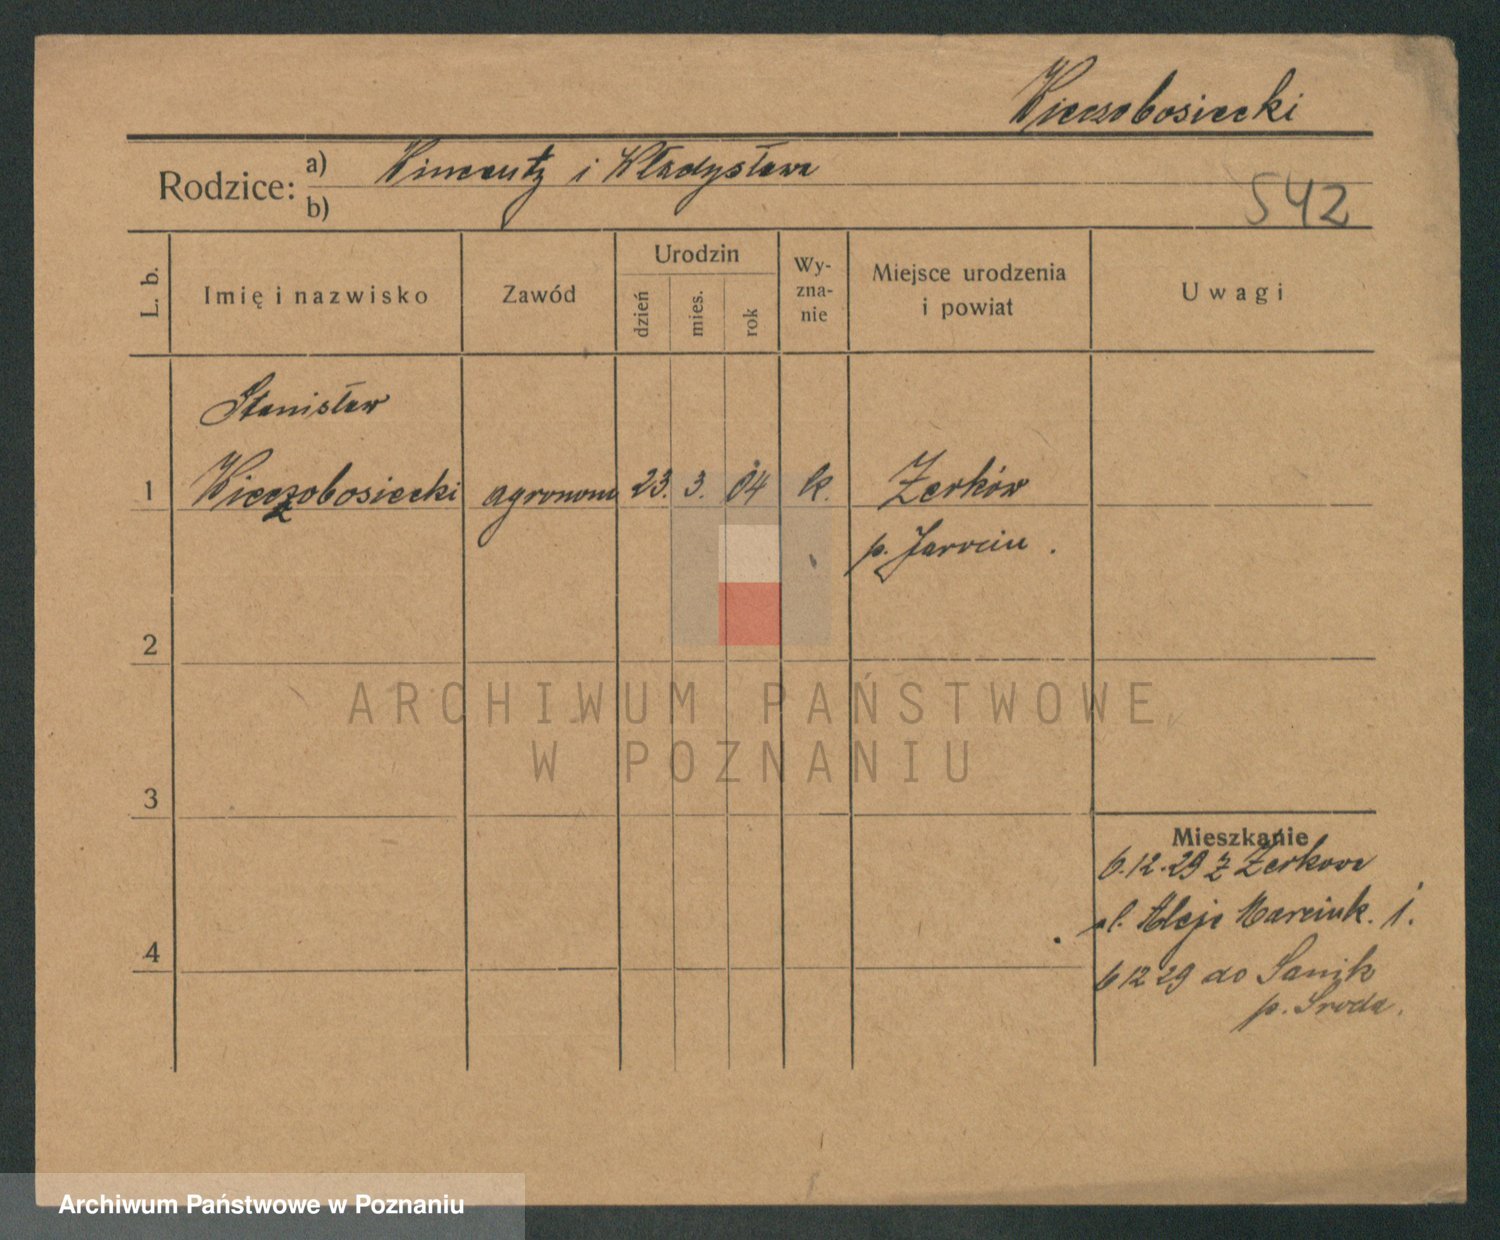 Wieczobosiecki
Rodzice: a) Wincenty i Władysława
b)
542
L. b.
Imię i nazwisko
Zawód
Urodzin
dzień
mies.
rok
Wy-
zna-
nie
Miejsce urodzenia
i powiat
Uwagi
Stanisław
1 Wieczobosiecki agronom 23. 3. 04 k. Żerków
p. Jarocin.
2
3
4
Mieszkanie
6.12.29 z Żerkowa
ul. Aleje Marcink. 1.
6 12 29 do Sanik
p. Środa.
ARCHIWUM PAŃSTWOWE
W POZNANIU
Archiwum Państwowe w Poznaniu